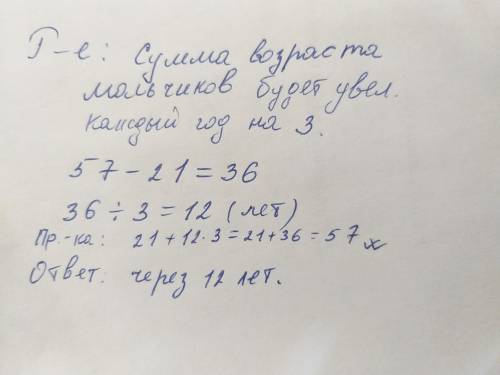 Р-е: Сумма возраста
мальчиков будет увел.
каждый год на 3.
57-21=36
36÷3=12 (лет)
Пр.-ка: 21+12·3=21+36=57
Ответ: через 12 лет.